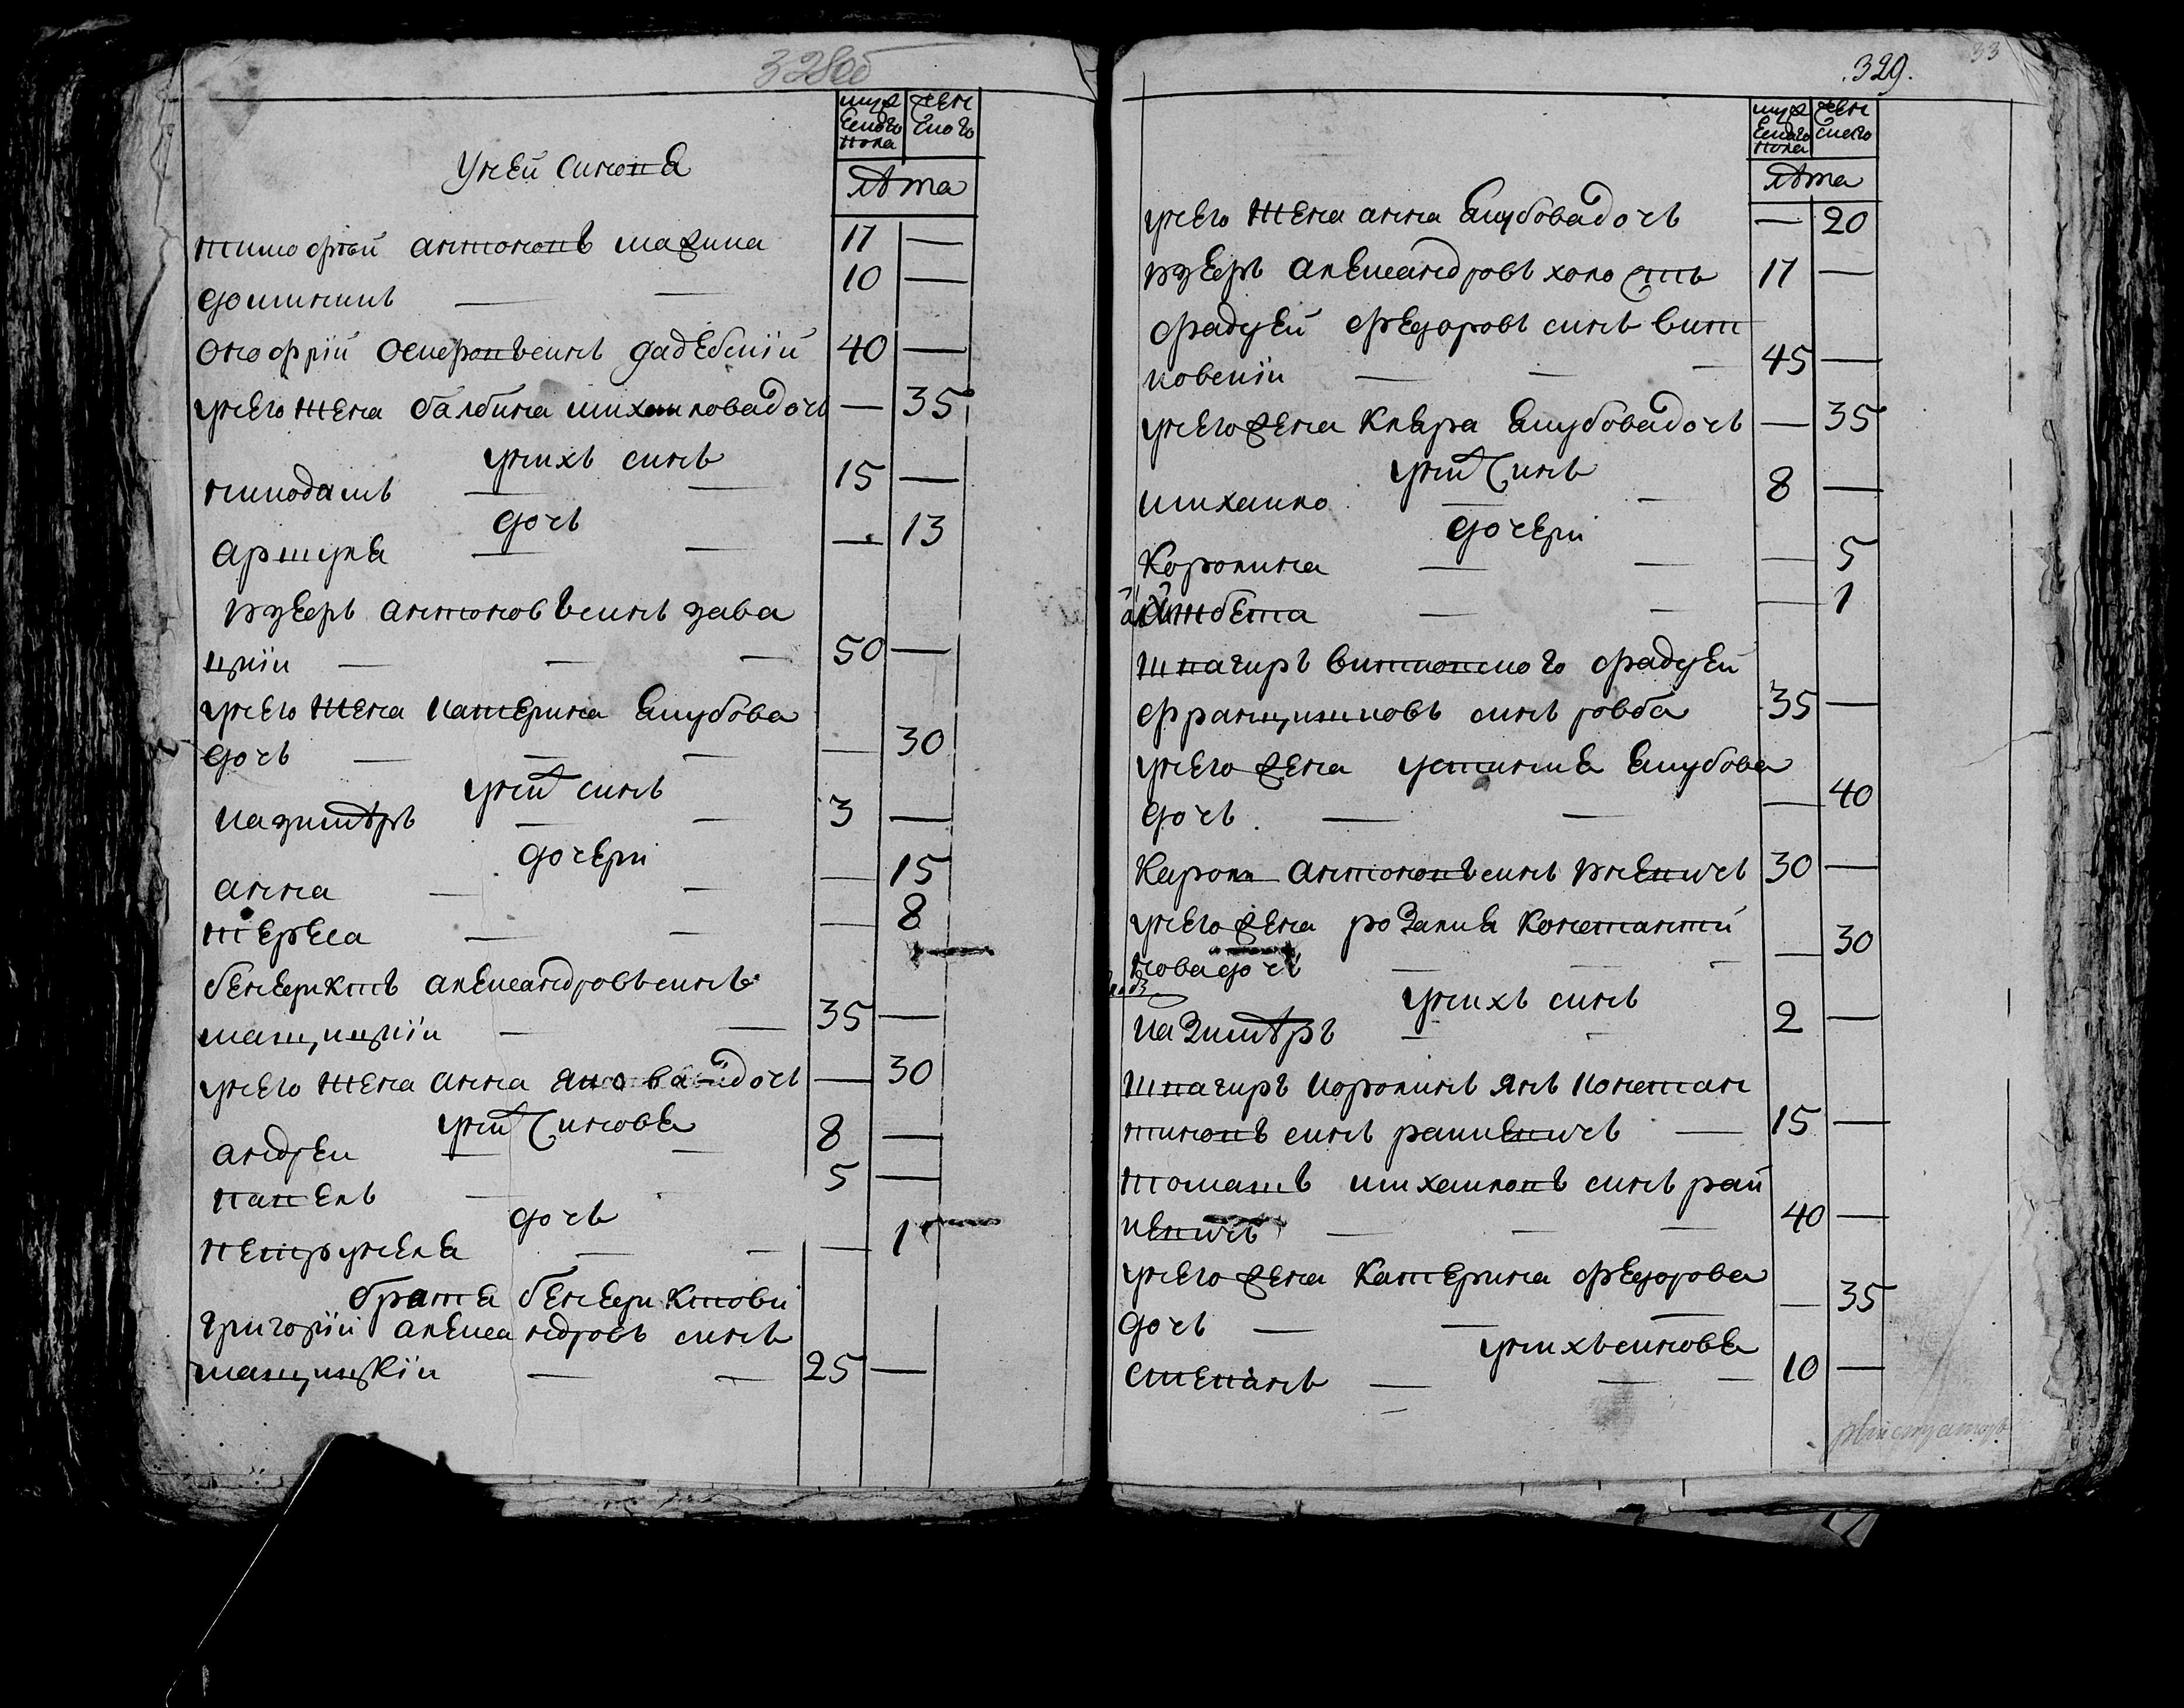 328об
муж женс
ескаго скаго
пола
лѣта
унеи синове
тимофѣй антоновъ мажина 17 —
доминикъ — — 10 —
онофрій осиповъ синъ дадебскій 40 —
унего жена балбина михаиловадочъ — 35
унихъ синъ
никодимъ — — 15 —
дочъ
аршула — — — 13
юзефъ антоновъ синъ зава
цкіи — — — 50 —
унего жена катерина якубова
дочъ — — — — 30
унихъ синъ
казимѣръ — — 3 —
дочери
анна — — — 15
тереса — — — 8
бенедиктъ александровъ синъ
мащицкіи — — 35 —
унего жена анна янова дочъ — 30
унихъ синове
андреи — — 8 —
павелъ — 5 —
дочъ
петрунеля — — — 1
брата бенедиктови
григорій александровъ синъ
мащицкіи — — 25 —
329. 33
муж женс
ескаго скаго
пола
лѣта
унего жена анна якубовадочъ — 20
юзефъ александровъ холостъ 17 —
фадѣей федоровъ синъ вит
ковскіи — — — 45 —
унего жена клара якубовадочъ — 35
унихъ синъ
михаило — — 8 —
дочери
каролина — — — 5
елжбета — — — 1
шпагиръ витковскаго фадѣей
францишковъ синъ ровба 35 —
унего жена устиния якубова
дочъ — — — 40
кароль антоновъ синъ юневичъ 30 —
унего жена розалия константи
новадочъ — — — — 30
унихъ синъ
казимѣръ — — 2 —
шпагиръ каролинъ янъ констан
тиновъ синъ рапкевичъ — 15 —
томашъ михаиловъ синъ рап
кевичъ — — — 40 —
унего жена катерина федорова
дочъ — — — — 35
унихъ синове
степанъ — — — 10 —